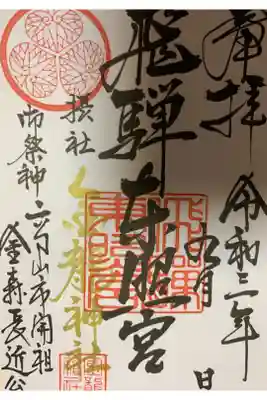 奉拝
令和三年
九月 日
飛騨東照宮
摂社
金龍神社
御祭神
高山市開祖
金森長近公